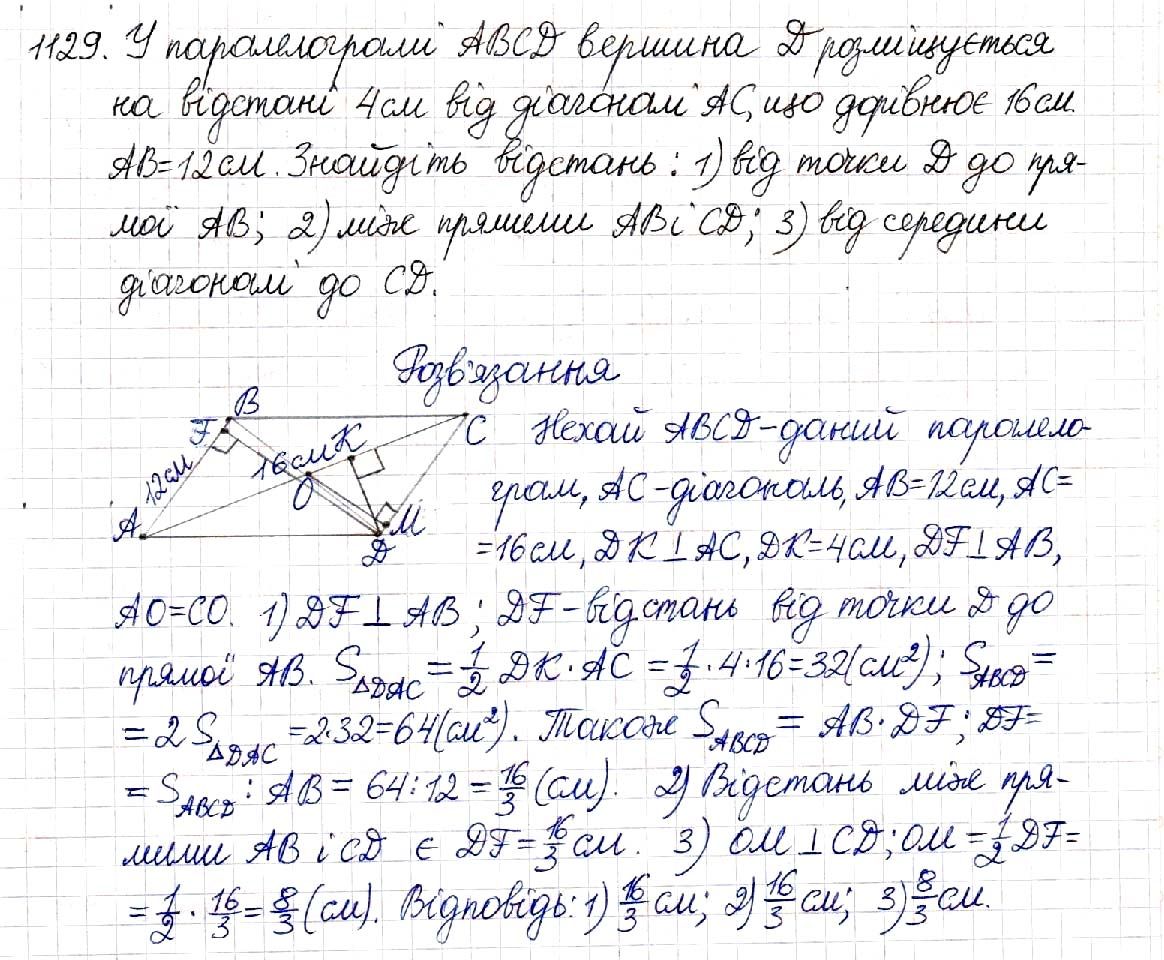 1129. У паралелограмі ABCD вершина D розміщується
на відстані 4 см від діагоналі AC, що дорівнює 16 см.
AB=12 см. Знайдіть відстань: 1) від точки D до пря-
мої AB; 2) між прямими AB і CD; 3) від середини
діагоналі до CD.
Розв'язання
B
F
C
K
16 см
12 см
O
A
M
D
Нехай ABCD - даний паралело-
грам, AC - діагональ, AB=12 см, AC=
=16 см, DK⊥AC, DK=4 см, DF⊥AB,
AO=CO. 1) DF⊥AB; DF - відстань від точки D до
прямої AB. S△DAC = 1/2 DK·AC = 1/2·4·16=32(см²); SABCD=
=2S△DAC=2·32=64(см²). Також SABCD = AB·DF; DF=
=SABCD : AB = 64:12 = 16/3 (см). 2) Відстань між пря-
мими AB і CD є DF=16/3 см. 3) OM⊥CD; OM=1/2 DF=
=1/2·16/3=8/3(см). Відповідь: 1) 16/3 см; 2) 16/3 см; 3) 8/3 см.